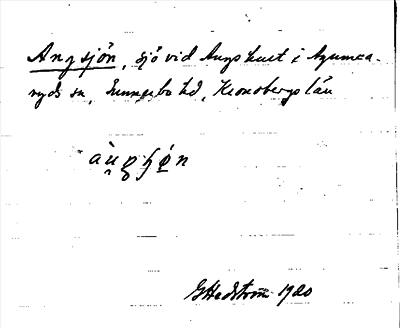 Angsjön, sjö vid Angshult i Agunna-
ryds sn, Sunnerbo hd, Kronobergs län
GHedström 1920